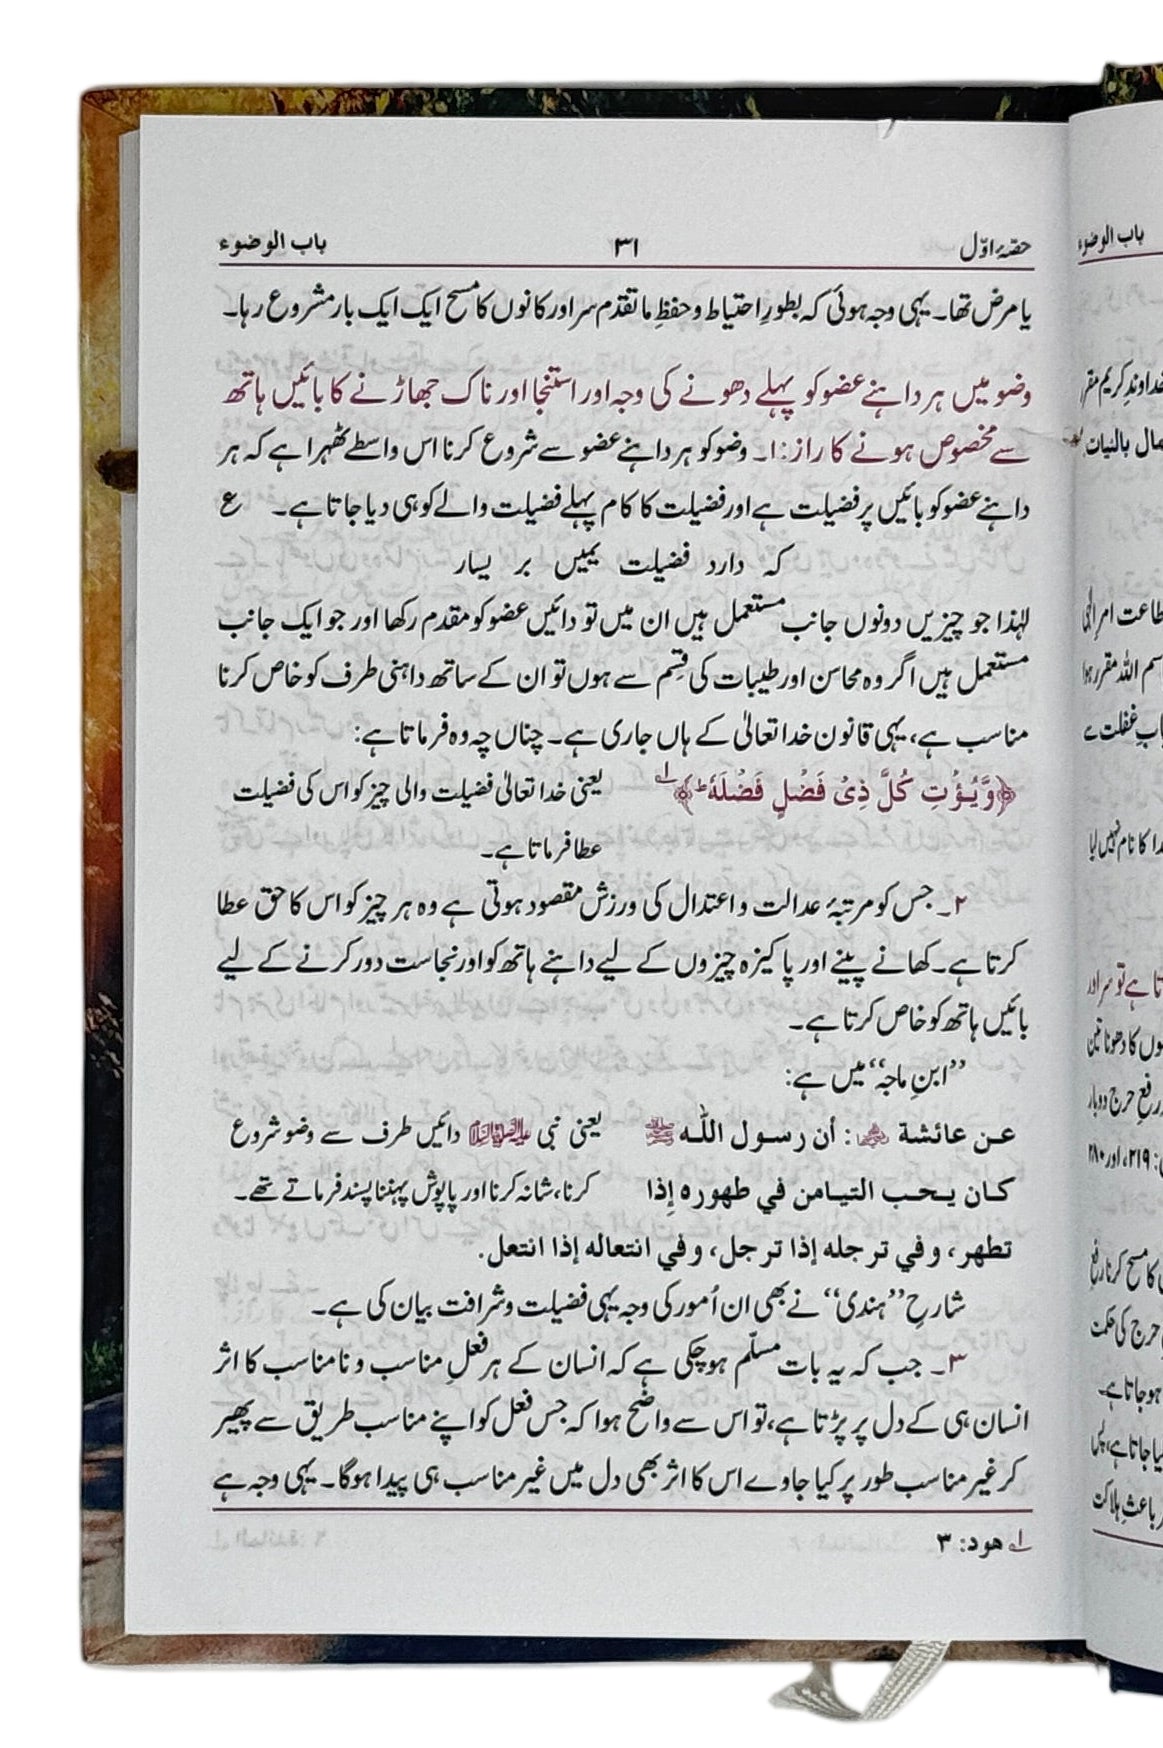 حصّۂ اوّل ۳۱ باب الوضوء
یا مرض تھا۔ یہی وجہ ہوئی کہ بطورِ احتیاط و حفظِ ما تقدم سر اور کانوں کا مسح ایک ایک بار مشروع رہا۔
وضو میں ہر داہنے عضو کو پہلے دھونے کی وجہ اور استنجا اور ناک جھاڑنے کا بائیں ہاتھ
سے مخصوص ہونے کا راز: ۱۔ وضو کو ہر داہنے عضو سے شروع کرنا اس واسطے ٹھہرا ہے کہ ہر
داہنے عضو کو بائیں پر فضیلت ہے اور فضیلت کا کام پہلے فضیلت والے کو ہی دیا جاتا ہے۔ ع
کہ دارد فضیلت یمیں بر یسار
لہٰذا جو چیزیں دونوں جانب مستعمل ہیں ان میں تو دائیں عضو کو مقدم رکھا اور جو ایک جانب
مستعمل ہیں اگر وہ محاسن اور طیبات کی قسم سے ہوں تو ان کے ساتھ داہنی طرف کو خاص کرنا
مناسب ہے، یہی قانون خدا تعالیٰ کے ہاں جاری ہے۔ چناں چہ وہ فرماتا ہے:
﴿وَّيُؤْتِ كُلَّ ذِىْ فَضْلٍ فَضْلَهٗ ؕ﴾ ۱ یعنی خدا تعالیٰ فضیلت والی چیز کو اس کی فضیلت
عطا فرماتا ہے۔
۲۔ جس کو مرتبۂ عدالت و اعتدال کی ورزش مقصود ہوتی ہے وہ ہر چیز کو اس کا حق عطا
کرتا ہے۔ کھانے پینے اور پاکیزہ چیزوں کے لیے داہنے ہاتھ کو اور نجاست دور کرنے کے لیے
بائیں ہاتھ کو خاص کرتا ہے۔
”ابنِ ماجہ“ میں ہے:
عن عائشة رضی اللہ عنہا: أن رسول اللّٰه ﷺ یعنی نبی علیہ الصلوٰۃ والسلام دائیں طرف سے وضو شروع
کان یحب التیامن في طهوره إذا کرنا، شانہ کرنا اور پاپوش پہننا پسند فرماتے تھے۔
تطهر، وفي ترجله إذا ترجل، وفي انتعاله إذا انتعل.
شارحِ ”ہندی“ نے بھی ان اُمور کی وجہ یہی فضیلت و شرافت بیان کی ہے۔
۳۔ جب کہ یہ بات مسلّم ہو چکی ہے کہ انسان کے ہر فعلِ مناسب و نامناسب کا اثر
انسان ہی کے دل پر پڑتا ہے، تو اس سے واضح ہوا کہ جس فعل کو اپنے مناسب طریق سے پھیر
کر غیر مناسب طور پر کیا جاوے اس کا اثر بھی دل میں غیر مناسب ہی پیدا ہوگا۔ یہی وجہ ہے
۱ ھود: ۳
باب الوضوء
مال بالنیات